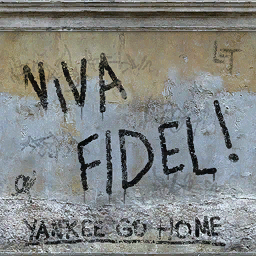 LT
VIVA
FIDEL!
YANKEE GO HOME